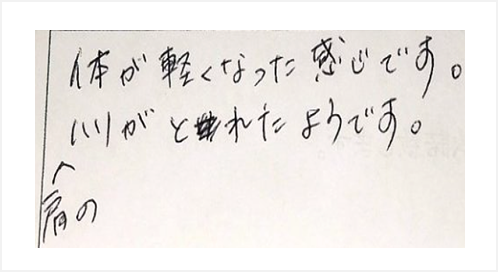 体が軽くなった感じです。
ハリがとれたようです。
^
肩の